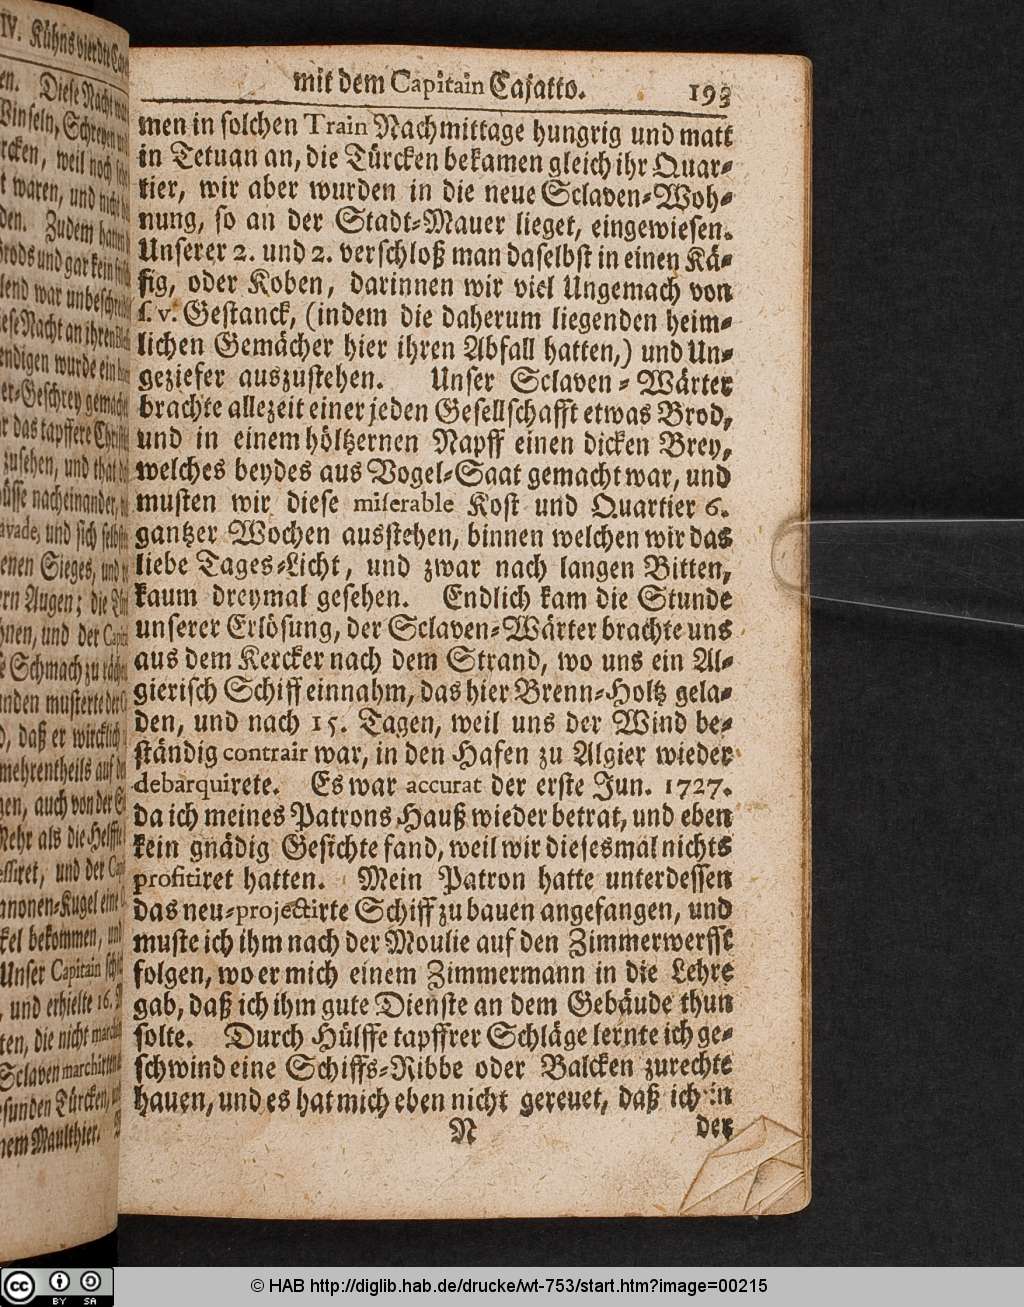 mit dem Capitain Cajatto. 193
men in solchen Train Nachmittage hungrig und matt
in Tetuan an, die Türcken bekamen gleich ihr Quar-
tier, wir aber wurden in die neue Sclaven-Woh-
nung, so an der Stadt-Mauer lieget, eingewiesen.
Unserer 2. und 2. verschloß man daselbst in einen Kä-
fig, oder Koben, darinnen wir viel Ungemach von
s. v. Gestanck, (indem die daherum liegenden heim-
lichen Gemächer hier ihren Abfall hatten,) und Un-
geziefer auszustehen. Unser Sclaven-Wärter
brachte allezeit einer jeden Gesellschafft etwas Brod,
und in einem höltzernen Napff einen dicken Brey,
welches beydes aus Vogel-Saat gemacht war, und
musten wir diese miserable Kost und Quartier 6.
gantzer Wochen ausstehen, binnen welchen wir das
liebe Tages-Licht, und zwar nach langen Bitten,
kaum dreymal gesehen. Endlich kam die Stunde
unserer Erlösung, der Sclaven-Wärter brachte uns
aus dem Kercker nach dem Strand, wo uns ein Al-
gierisch Schiff einnahm, das hier Brenn-Holtz gela-
den, und nach 15. Tagen, weil uns der Wind be-
ständig contrair war, in den Hafen zu Algier wieder
debarquirete. Es war accurat der erste Jun. 1727.
da ich meines Patrons Hauß wieder betrat, und eben
kein gnädig Gesichte fand, weil wir diesesmal nichts
profitiret hatten. Mein Patron hatte unterdessen
das neu-projectirte Schiff zu bauen angefangen, und
muste ich ihm nach der Moulie auf den Zimmerwerffte
folgen, wo er mich einem Zimmermann in die Lehre
gab, daß ich ihm gute Dienste an dem Gebäude thun
solte. Durch Hülffe tapffrer Schläge lernte ich ge-
schwind eine Schiffs-Ribbe oder Balcken zurechte
hauen, und es hat mich eben nicht gereuet, daß ich in
N der
© HAB http://diglib.hab.de/drucke/wt-753/start.htm?image=00215